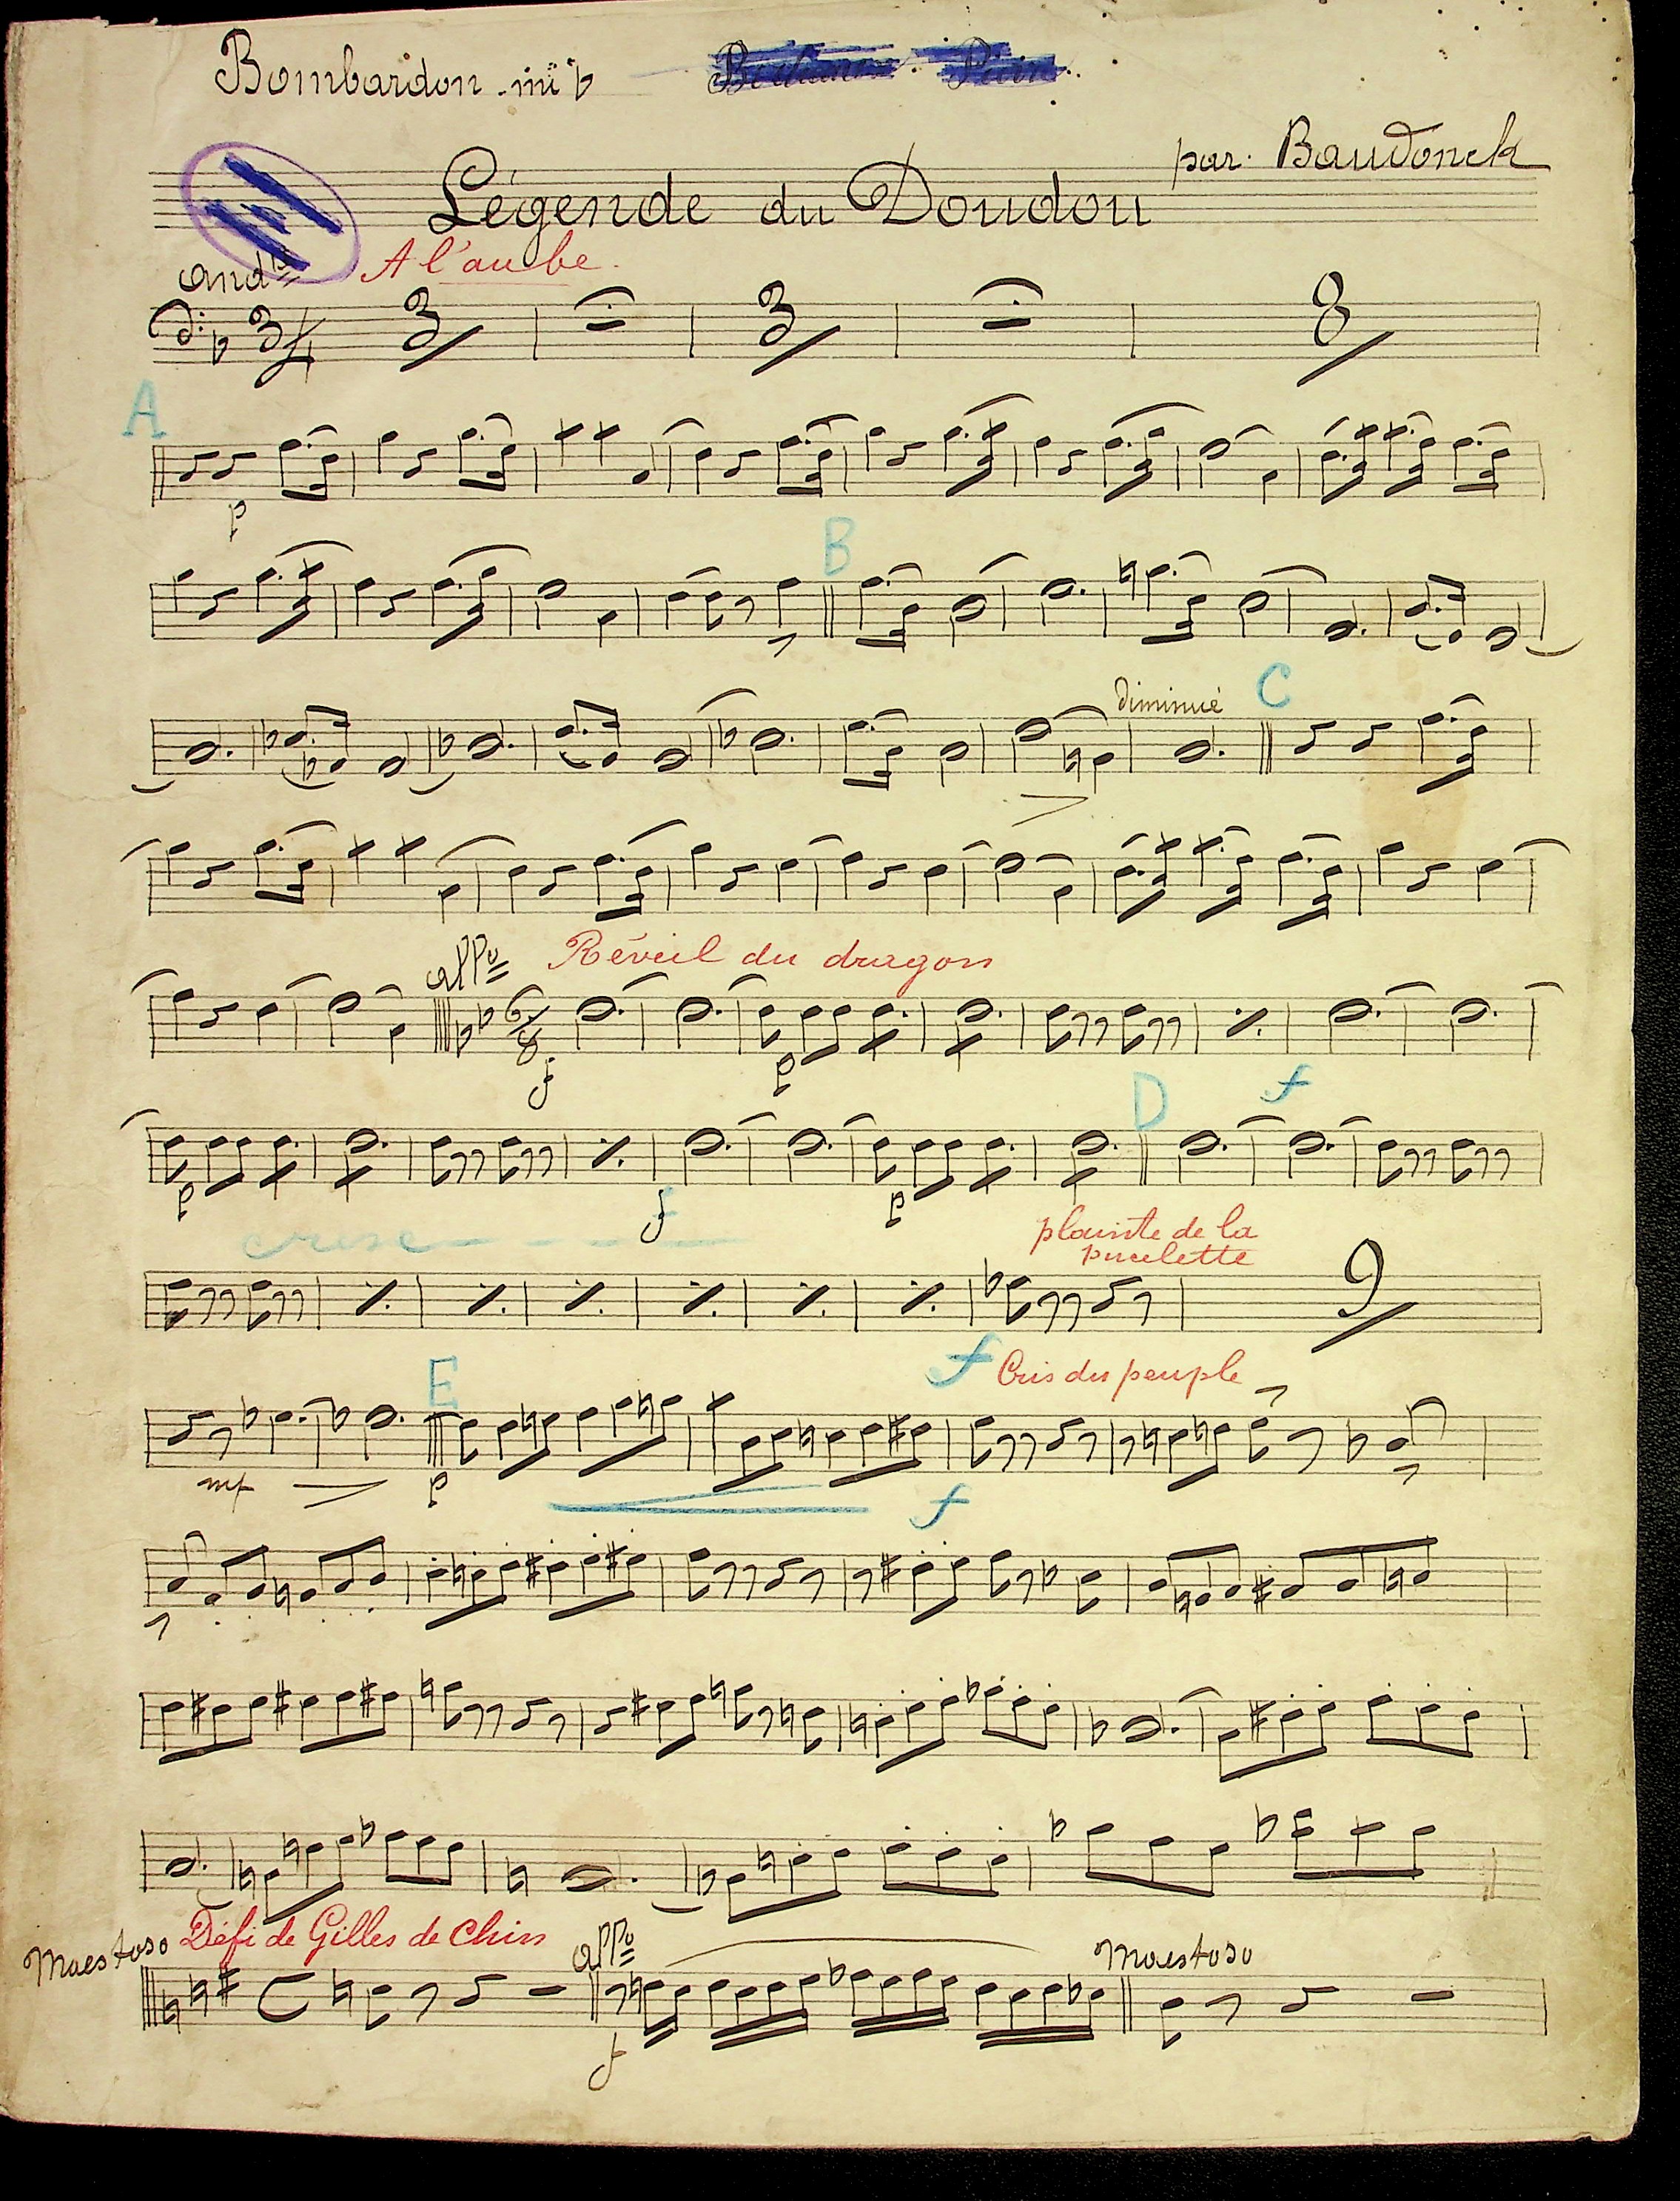 Bombardon mi b
par. Baudonck
Légende du Doudon
Andte
A l'aube.
3/4 3 3 8
A
p
B
diminué
C
allo
Réveil du dragon
6/8
f p
D
f
p f p
cresc
plainte de la
pucelette
9
f Cris du peuple
E
mf p
f
Maestoso
Défi de Gilles de Chin
allo
Maestoso
C
f